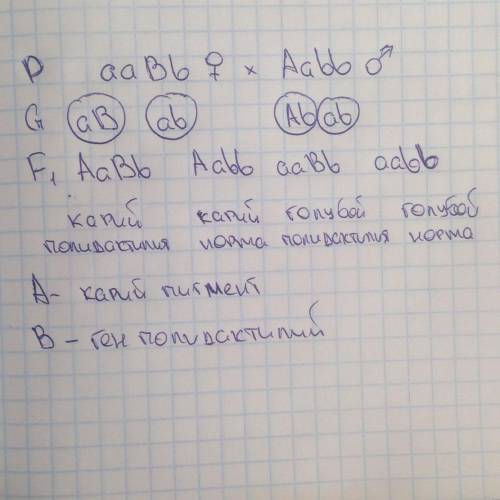 P aaBb ♀ × Aabb ♂
G aB ab Ab ab
F₁ AaBb Aabb aaBb aabb
карий карий голубой голубой
полидактилия норма полидактилия норма
A - карий пигмент
B - ген полидактилий